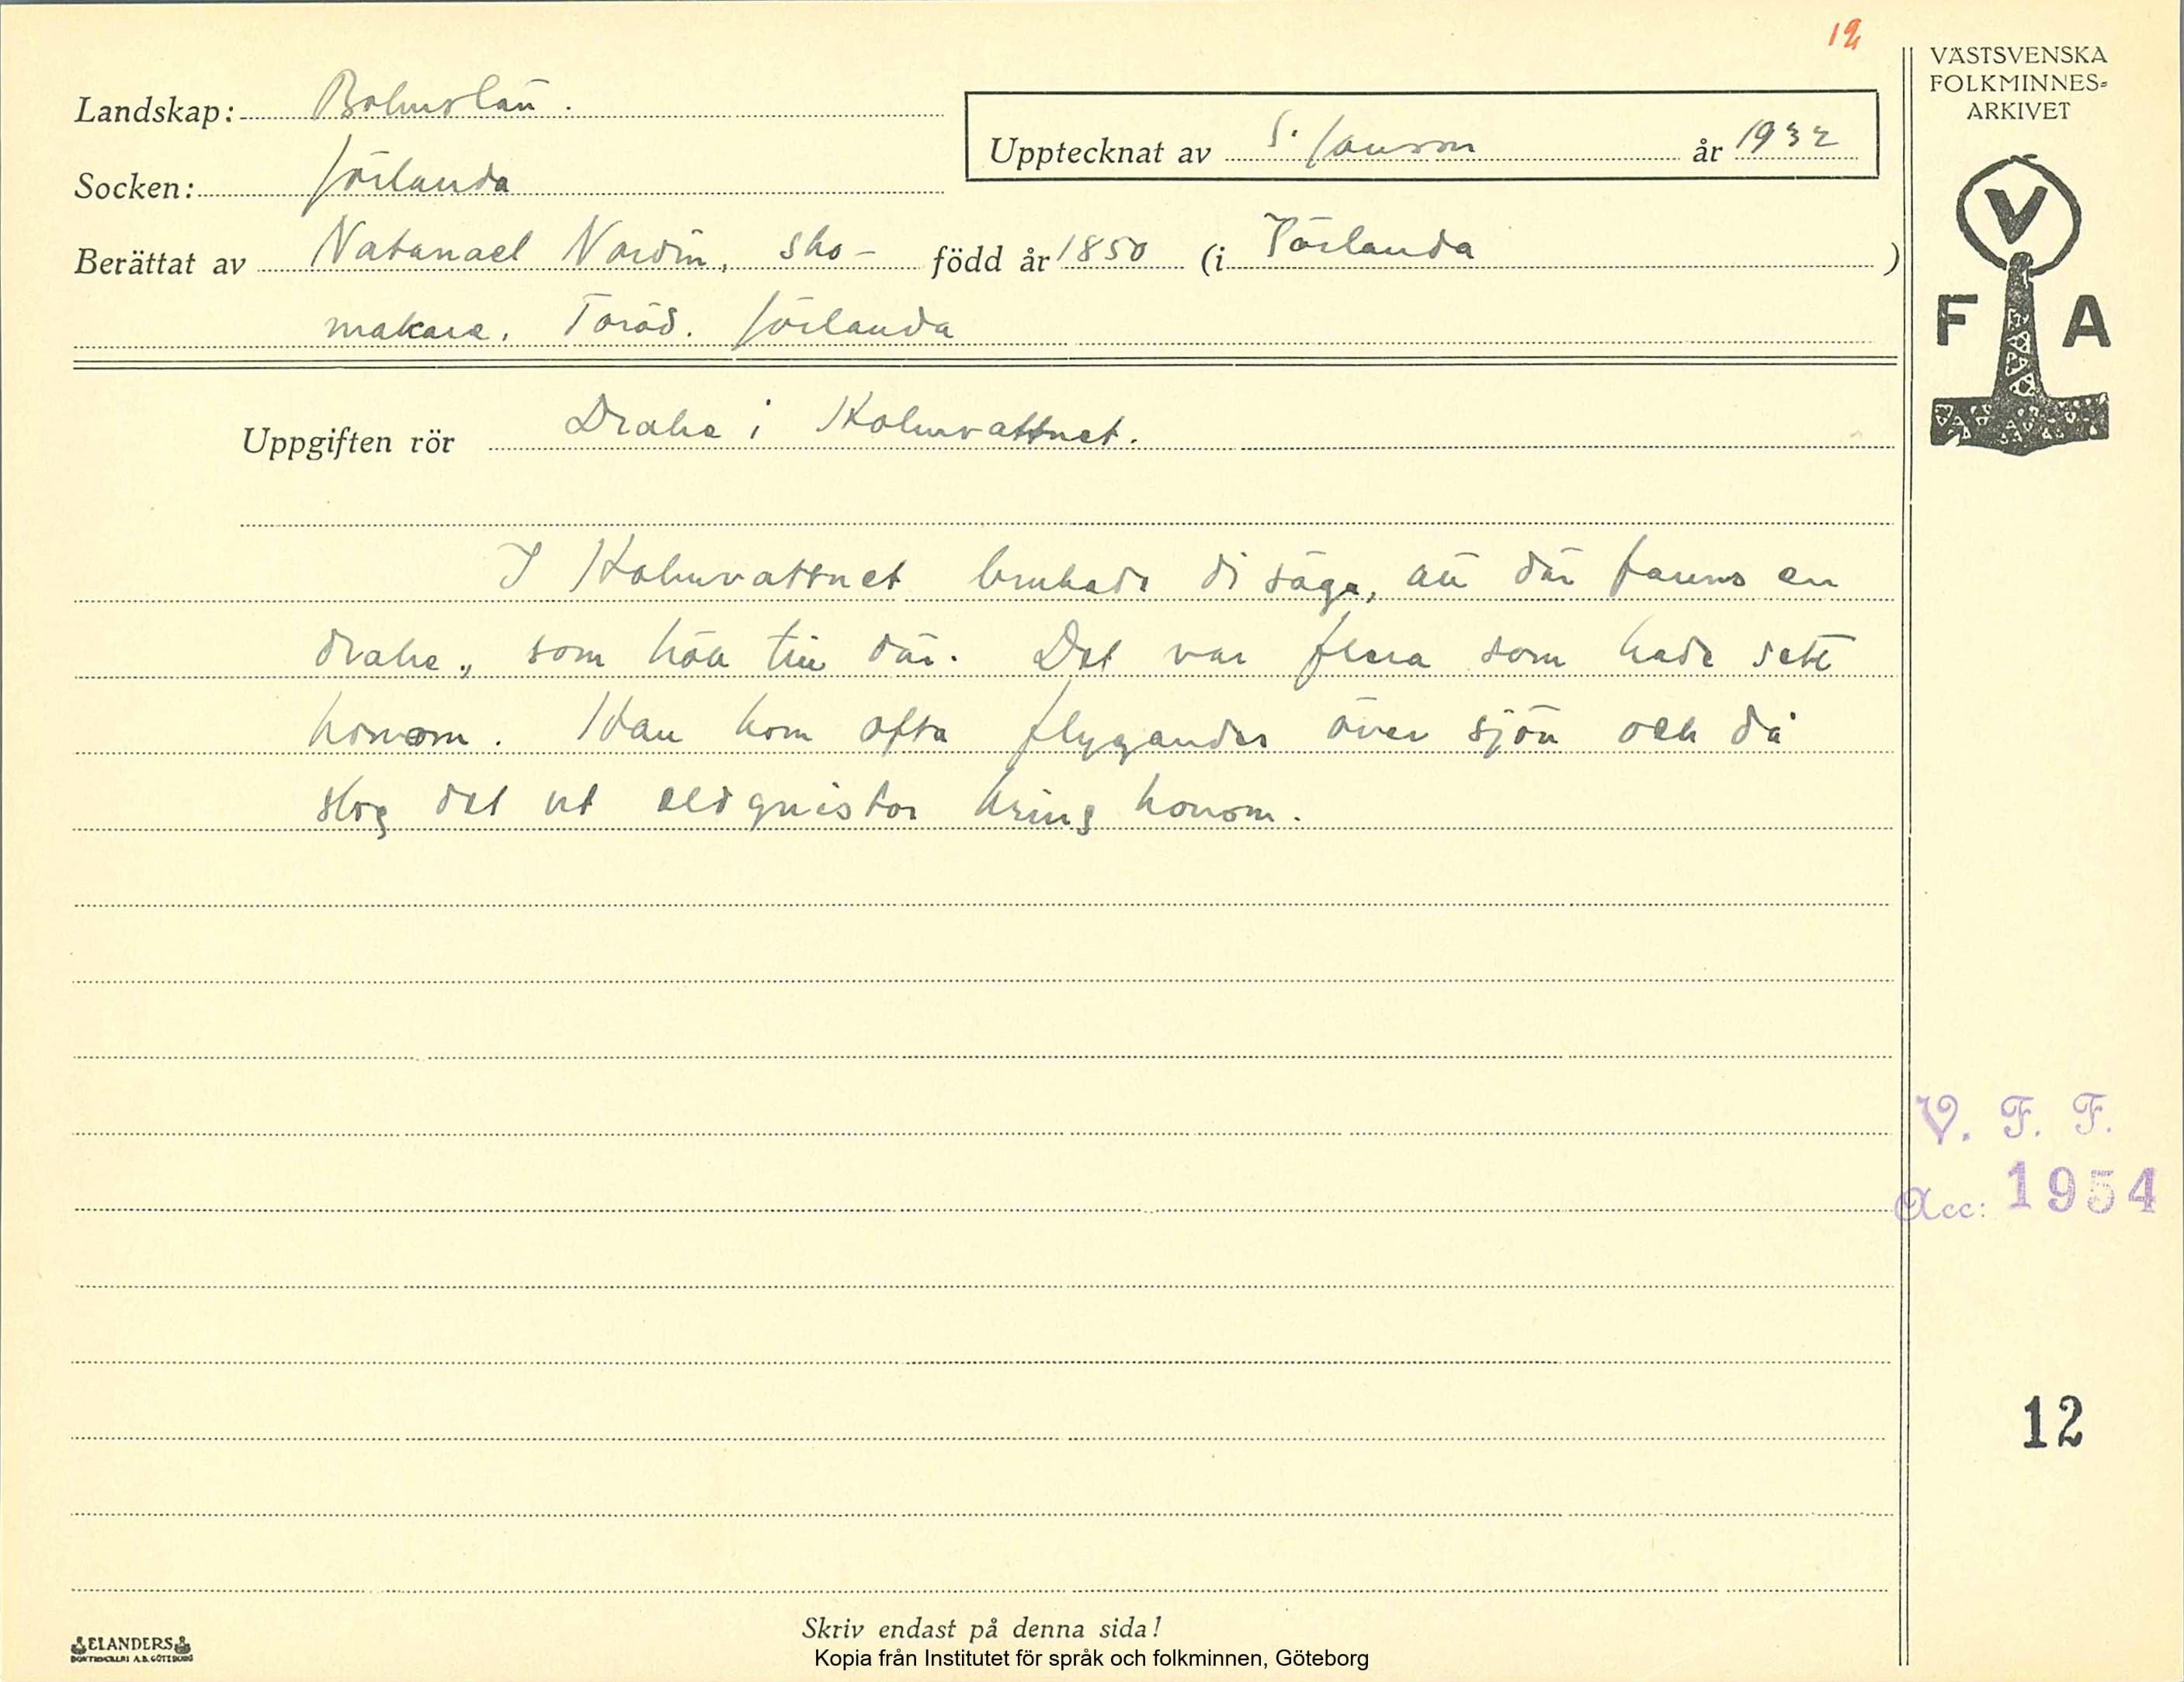 12
VÄSTSVENSKA
FOLKMINNES-
ARKIVET
Landskap: Bohuslän.
Upptecknat av S. Janson år 1932
Socken: Jörlanda
Berättat av Natanael Nordin, sko- född år 1850 (i Jörlanda)
makare, Toröd. Jörlanda
V
F A
Uppgiften rör Drake i Holmvattnet.
I Holmvattnet brukade di säga, att där fanns en
drake, som höll till där. Det var flera som hade sett
honom. Han kom ofta flygandes över sjön och då
slog det ut eldgnistor kring honom.
V. F. F.
Acc: 1954
12
Skriv endast på denna sida!
ELANDERS
BOKTRYCKERI A.B. GÖTEBORG
Kopia från Institutet för språk och folkminnen, Göteborg